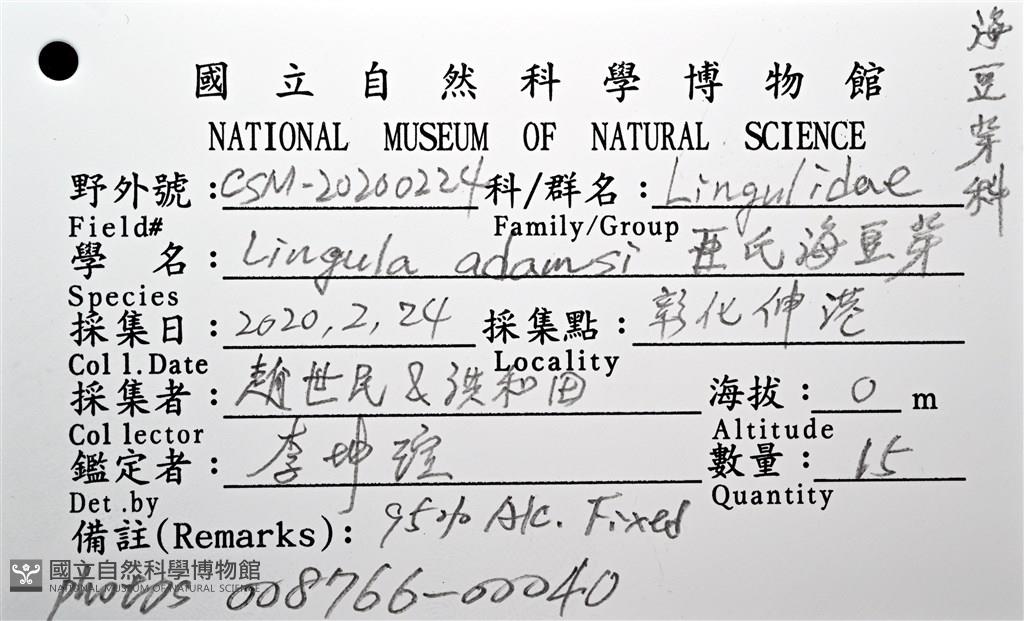 海豆芽科
國立自然科學博物館
NATIONAL MUSEUM OF NATURAL SCIENCE
野外號:CSM-20200224 科/群名:Lingulidae
Field# Family/Group
學 名:Lingula adamsi 亜氏海豆芽
Species
採集日:2020,2,24 採集點:彰化伸港
Coll.Date Locality
採集者:趙世民&洪和田 海拔:0 m
Collector Altitude
鑑定者:李坤瑄 數量:15
Det.by Quantity
備註(Remarks): 95% Alc. Fixed
國立自然科學博物館
NATIONAL MUSEUM OF NATURAL SCIENCE
photos 008766-00040